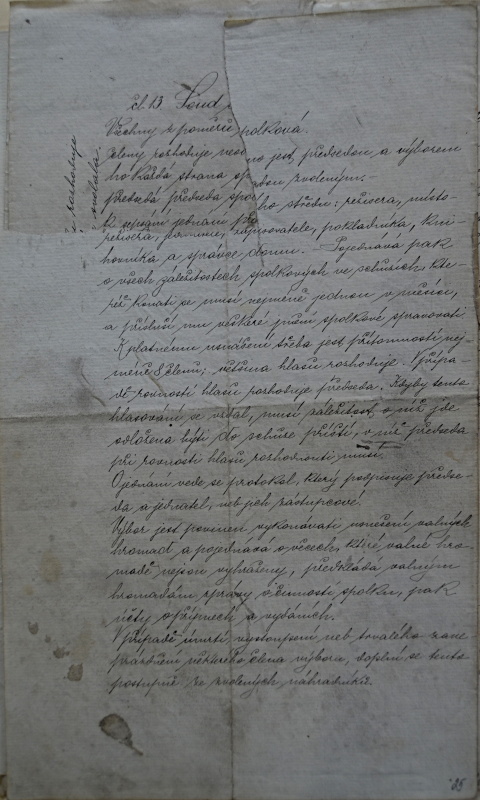 čl. 13. Soud
Všechny z poměrů spolková.
členy rozhoduje no jest, předsedou a výborem
ho každá strana sp zvoleným
předsedá předseda spol ho středu: režisera, místo-
K sepsání jednání
režisera, zapisovatele, pokladníka, kni-
hovníka a správce domu. Pojednává pak
o všech záležitostech spolkových ve schůzích, kte-
réž konati se musí nejméně jednou v měsíci,
a přísluší mu veškeré jmění spolkové spravovati
K platnému usnášení třeba jest přítomnosti nej-
méně 8 členů; většina hlasů rozhoduje. V přípa-
dě rovnosti hlasů rozhoduje předseda. Kdyby tento
hlasování se vzdal, musí záležitost, o niž jde
odložena býti do schůze příští, v níž předseda
při rovnosti hlasů rozhodnouti musí.
O jednání vede se protokol, který podpisuje předse-
da a jednatel, neb jich zástupcové.
Výbor jest povinen vykonávati usnešení valných
hromad a pojednává o věcech, které valné hro-
madě nejsou vyhraženy, předkládá valným
hromadám zprávy o činnosti spolku, pak
účty o příjmech a vydáních.
V případě úmrtí, vystoupení neb trvalého zane-
prázdnění některého člena výboru, doplní se tento
postupně ze zvolených náhradníků.
rozhoduje
25